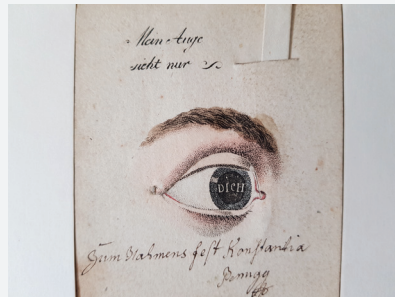 Man Auge
sieht nur
DICH
Zum Nahmens fest Konstantia